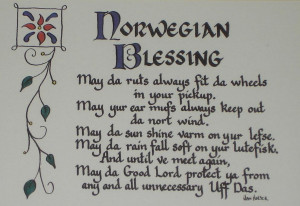 Norwegian
Blessing
May da ruts always fit da wheels
in your pickup.
May yur ear mufs always keep out
da nort wind.
May da sun shine varm on yur lefse.
May da rain fall soft on yur lutefisk.
And until ve meet again,
May da Good Lord protect ya from
any and all unnecessary Uff Das.